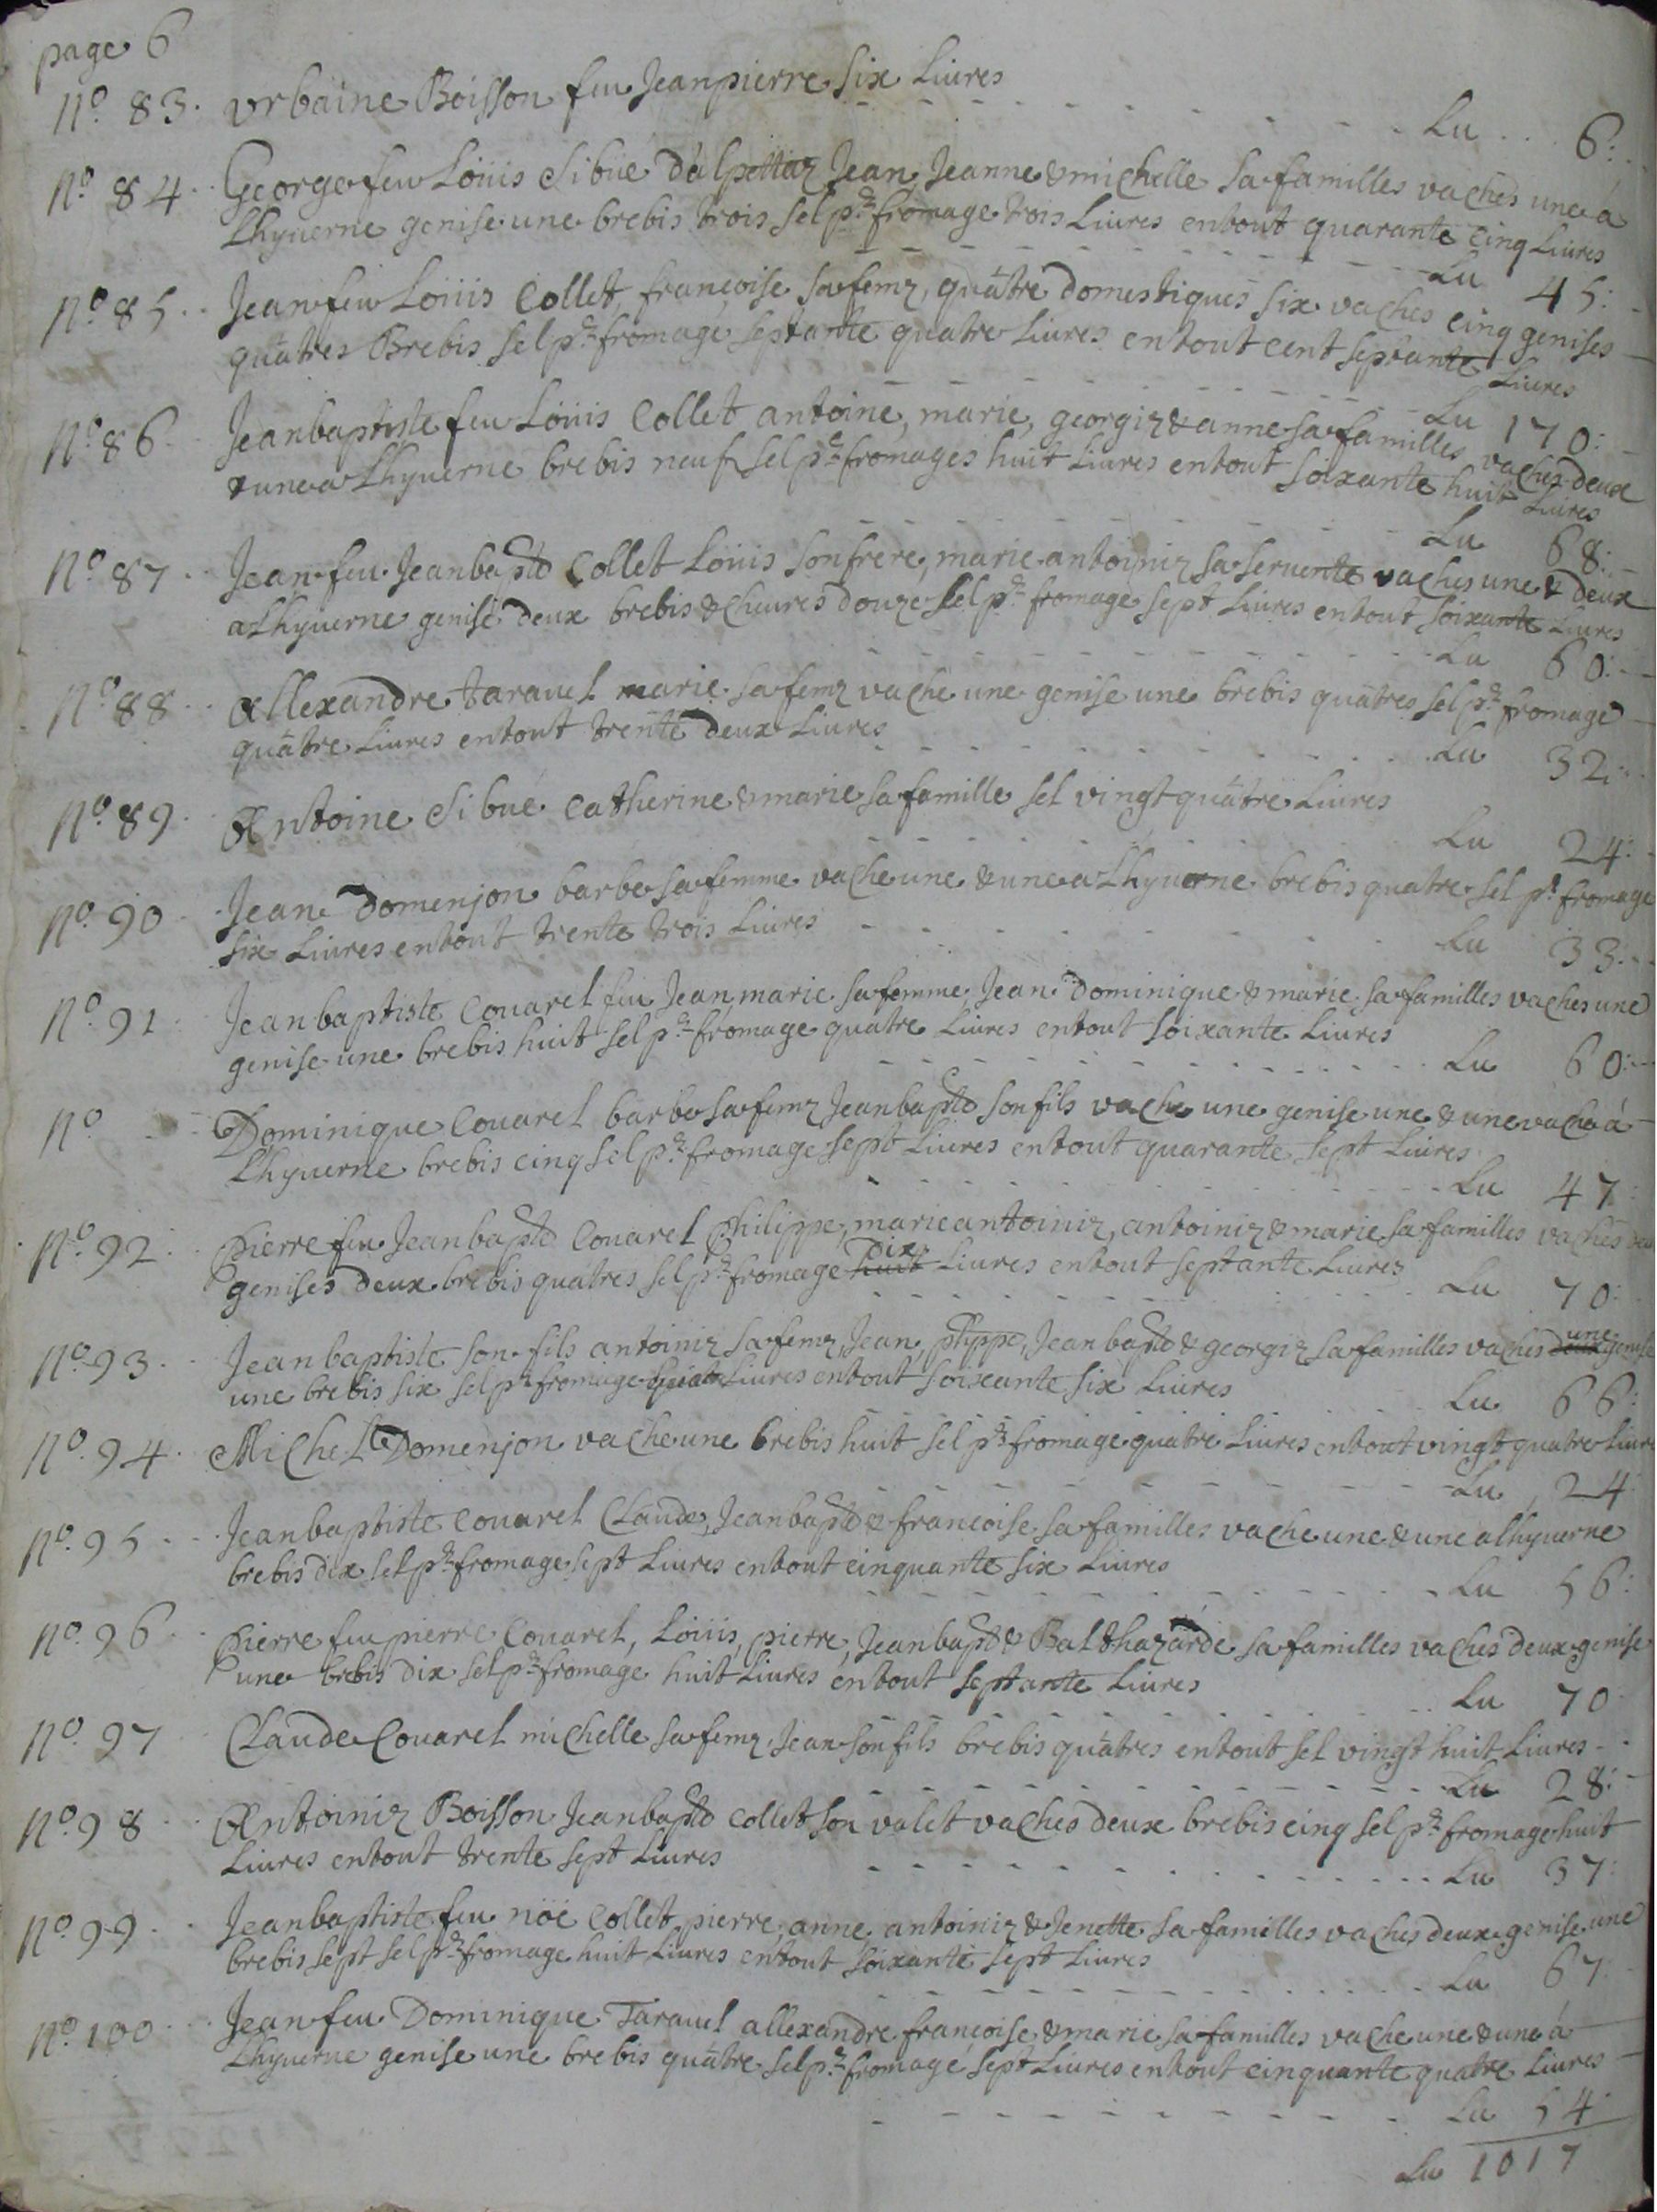 page 6
N.o 83. Urbaine Boisson feu Jeanpierre six Liures
Lu 6:
N.o 84. George feu Loüis Sibüe d'alpettaz Jean, Jeanne & michelle sa familles vaches une á
Lhyuerne genise une brebis trois sel pr fromage trois Liures entout quarante cinq Liures
Lu 45:
N.o 85. Jean feu Loüis Collet, françoise sa femz, quätre domestiques six vaches cinq genises
quätres Brebis sel pr fromage septante quatre Liures entout cent septante Liures
Lu 170:
N.o 86. Jeanbaptiste feu Loüis Collet antoine, marie, georgiz & anne sa familles vaches deux
& une a Lhyuerne brebis neuf sel pr fromages huit Liures entout soixante huit Liures
Lu 68:
N.o 87. Jean feu Jeanbaptd Collet Loüis son frere, marie antoiniz sa seruente vaches une & deux
a Lhyuerne genise deux brebis & cheures douze sel pr fromage sept Liures entout soixante Liures
Lu 60:
N.o 88. Allexandre tarauel marie sa femz vache une genise une brebis quätres sel pr fromage
quätre Liures entout trente deux Liures
Lu 32:
N.o 89. Antoine Sibüe Catherine & marie sa famille sel vingt quätre Liures
Lu 24:
N.o 90. Jean Domenjon barbe sa femme vache une & une a Lhyuerne brebis quatre sel pr fromage
six Liures entout trente trois Liures
Lu 33:
N.o 91. Jeanbaptiste Couarel feu Jean, marie sa femme, Jean Dominique & marie sa familles vaches une
genise une brebis huit sel pr fromage quatre Liures entout soixante Liures
Lu 60:
N.o Dominique Couarel barbe sa femz Jeanbaptd son fils vache une genise une & une vache á
Lhyuerne brebis cinq sel pr fromage sept Liures entout quarante sept Liures
Lu 47:
N.o 92. Pierre feu Jeanbaptd Couarel Philippe, marie antoiniz, antoiniz & marie sa familles vaches
dix
genises deux brebis quätres sel pr fromage huit Liures entout septante Liures
Lu 70:
une
N.o 93. Jeanbaptiste son fils antoiniz sa femz, Jean, phyppe, Jean baptd & georgiz sa familles vaches deux genise
une brebis six sel pr fromage Liures entout soixante six Liures
Lu 66:
N.o 94. Michel Domenjon vache une brebis huit sel pr fromage quatre Liures entout vingt quatre Liures
Lu 24
N.o 95. Jeanbaptiste Couarel Claude, Jeanbaptd & francoise sa familles vache une & une alhyuerne
brebis dix sel pr fromage sept Liures entout cinquante six Liures
Lu 56:
N.o 96. Pierre feu pierre Couarel, Loüis, pierre, Jeanbaptd & Balthazarde sa familles vaches deux genise
une brebis dix sel pr fromage huit Liures entout septante Liures
Lu 70
N.o 97 Claude Couarel michelle sa femz, Jean son fils brebis quätres entout sel vingt huit Liures
Lu 28:
N.o 98. Antoiniz Boisson Jeanbaptd Collet son valet vaches deux brebis cinq sel pr fromage huit
Liures entout trente sept Liures
Lu 37:
N.o 99. Jeanbaptiste feu nöé Collet, pierre, anne, antoiniz & Jenette sa familles vaches deux genise une
brebis sept sel pr fromage huit Liures entout soixante sept Liures
Lu 67
N.o 100. Jean feu Dominique Tarauel allexandre françoise & marie sa familles vache une & une á
Lhyuerne genise une brebis quätre sel pr fromage sept Liures entout cinquante quatre Liures
Lu 54
Lu 1017